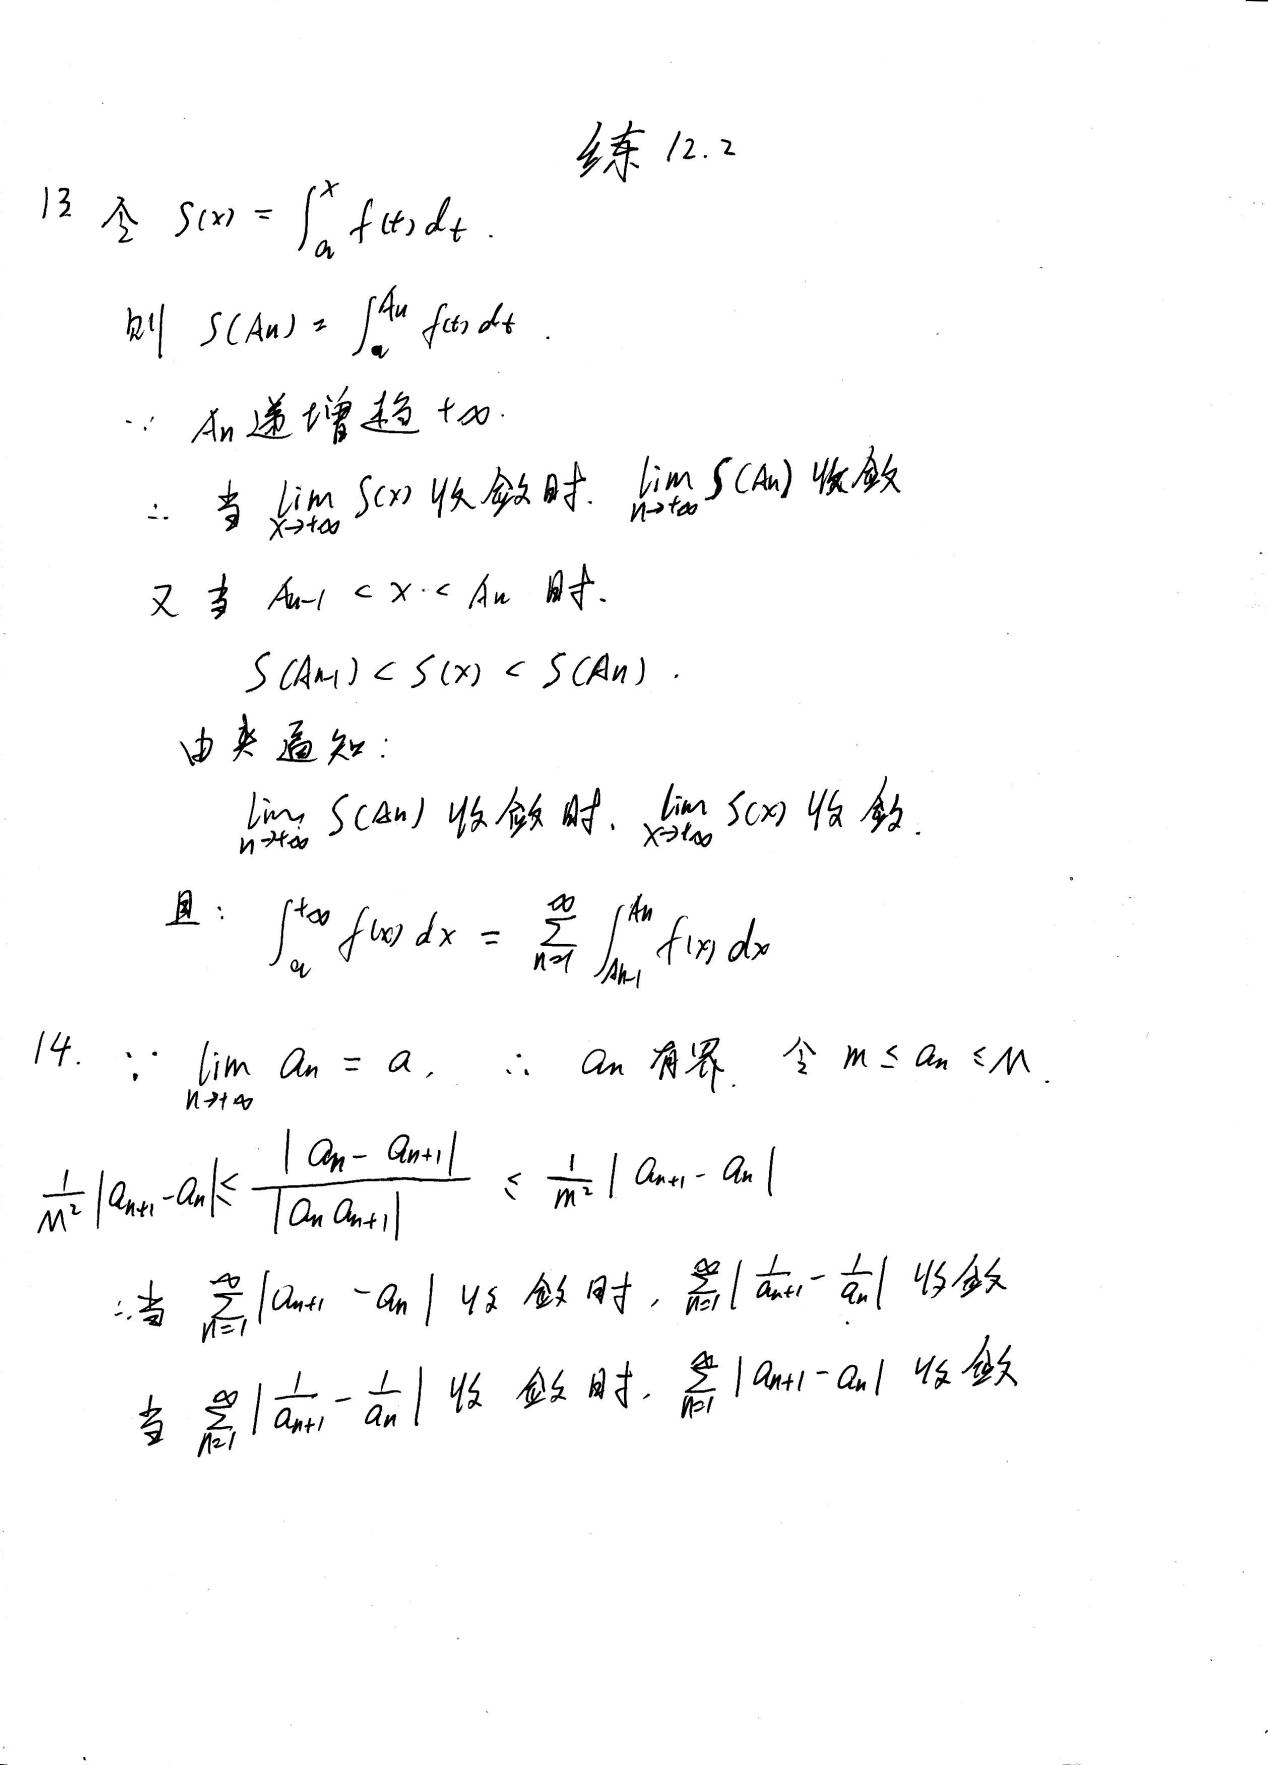 练 12.2
13 令 S(x) = ∫_a^x f(t)dt.
则 S(An) = ∫_a^{An} f(t)dt.
∵ An 递增趋 +∞.
∴ 当 lim_{x→+∞} S(x) 收敛时. lim_{n→+∞} S(An) 收敛
又当 A_{n-1} < x < An 时.
S(A_{n-1}) < S(x) < S(An).
由夹逼知:
lim_{n→+∞} S(An) 收敛时. lim_{x→+∞} S(x) 收敛.
且: ∫_a^{+∞} f(x)dx = ∑_{n=1}^∞ ∫_{A_{n-1}}^{An} f(x)dx
14. ∵ lim_{n→+∞} a_n = a, ∴ a_n 有界. 令 m ≤ a_n ≤ M.
1/M² |a_{n+1} - a_n| ≤ |a_n - a_{n+1}| / |a_n a_{n+1}| ≤ 1/m² |a_{n+1} - a_n|
∴ 当 ∑_{n=1}^∞ |a_{n+1} - a_n| 收敛时, ∑_{n=1}^∞ |1/a_{n+1} - 1/a_n| 收敛
当 ∑_{n=1}^∞ |1/a_{n+1} - 1/a_n| 收敛时. ∑_{n=1}^∞ |a_{n+1} - a_n| 收敛